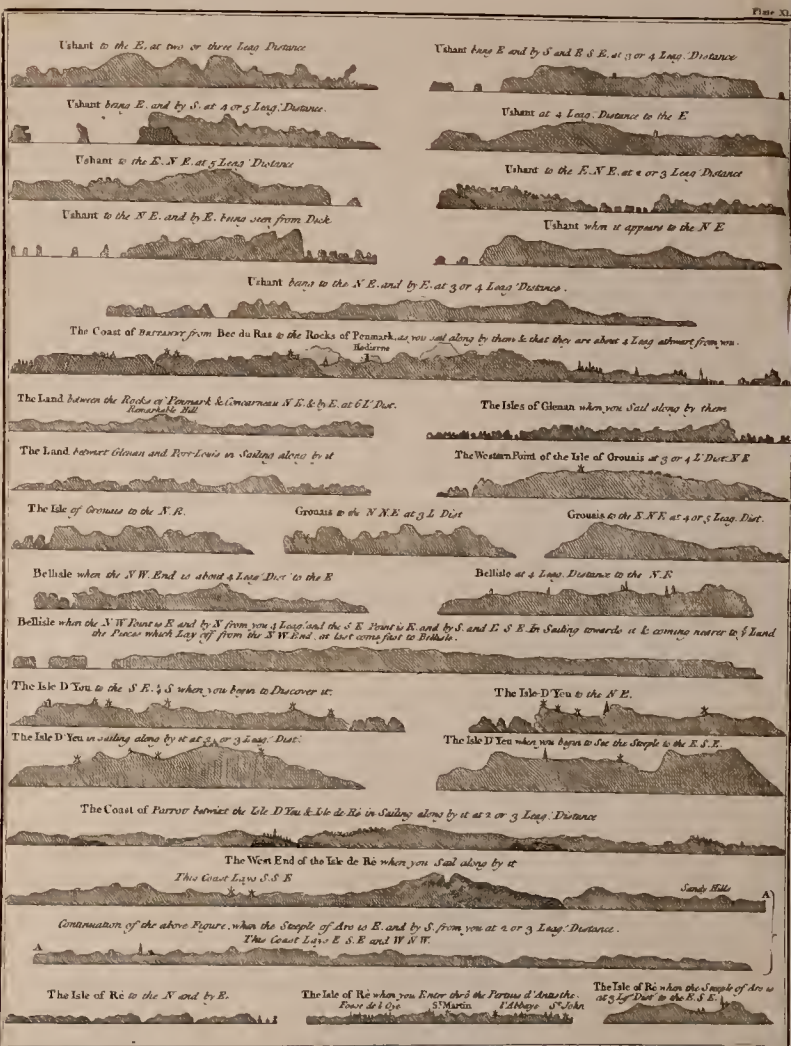 Plate XI.
Ushant to the E. at two or three Leag Distance
Ushant being E and by S and E S E. at 3 or 4 Leag. Distance
Ushant being E. and by S. at 4 or 5 Leag. Distance.
Ushant at 4 Leag. Distance to the E
Ushant to the E. N E. at 5 Leag. Distance
Ushant to the E. N E. at 2 or 3 Leag Distance
Ushant to the N E. and by E. being seen from Deck
Ushant when it appears to the N E
Ushant being to the N E. and by E. at 3 or 4 Leag Distance.
The Coast of BRITANNY from Bec du Ras to the Rocks of Penmark, as you sail along by them & that they are about 4 Leag athwart from you.
Hodierne
The Land between the Rocks of Penmark & Concarneau N E. & by E. at 6 L. Dist.
Remarkable Hill
The Isles of Glenan when you Sail along by them
The Land betwixt Glenan and Port-Louis in Sailing along by it
The Western Point of the Isle of Grouais at 3 or 4 L. Dist. N E
The Isle of Grouais to the N. E.
Grouais to the N N.E at 3 L Dist
Grouais to the E. N E at 4 or 5 Leag. Dist.
Bellisle when the N W. End is about 4 Leag. Dist. to the E
Bellisle at 4 Leag. Distance to the N. E
Bellisle when the N W Point is E and by N from you 4 Leag. and the S E Point is E. and by S. and E S E. In Sailing towards it & coming nearer to ye Land
the Pieces which Lay off from the N W. End, at last come fast to Bellisle.
The Isle D'You to the S E. ¼ S when you begin to Discover it.
The Isle D'You to the N E.
The Isle D'Yeu in sailing along by it at 2 or 3 Leag. Dist.
The Isle D'Yeu when you begin to See the Steeple to the E. S E.
The Coast of Parrow betwixt the Isle D'You & Isle de Ré in Sailing along by it at 2 or 3 Leag. Distance
The West End of the Isle de Ré when you Sail along by it
This Coast Lays S. S E
Sandy Hills
A
Continuation of the above Figure, when the Steeple of Ars is E. and by S. from you at 2 or 3 Leag. Distance.
This Coast Lays E S. E and W N W.
A
The Isle of Ré to the N and by E.
The Isle of Ré when you Enter thrô the Pertuis d'Antioche.
Fosse de l'Oye
St. Martin
l'Abbaye
St. John
The Isle of Ré when the Steeple of Ars is
at 3 Lg. Dist. to the E. S E.